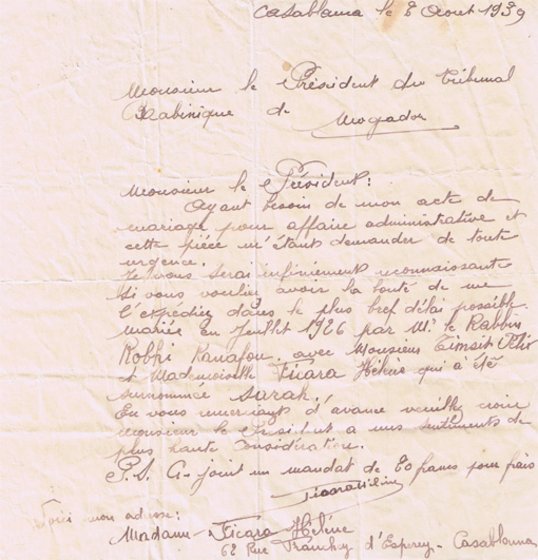 Casablanca le 2 Aout 1939
Monsieur le Président du Tribunal
Rabinique de
Mogador
Monsieur le Président:
Ayant besoin de mon acte de
mariage pour affaire administrative et
cette pièce m'étant demander de toute
urgence.
Je vous serai infiniement reconnaissante
si vous vouliez avoir la bonté de me
l'expedier dans le plus bref délai possible
mariée en Juillet 1926 par Mr le Rabbin
Robhi Kanafou. avec Monsieur Timsit Félix
et Mademoiselle Ficara Hélène qui à été
surnommée Sarah.
En vous remerciant d'avance veuillez croire
monsieur le Président a mes sentiments de
plus haute Considération.
P.S. Ci-joint un mandat de 20 francs pour frais
Ficara Hélène
Voici mon adresse:
Madame Ficara Hélène
62 Rue Franchey d'Esperey - Casablanca